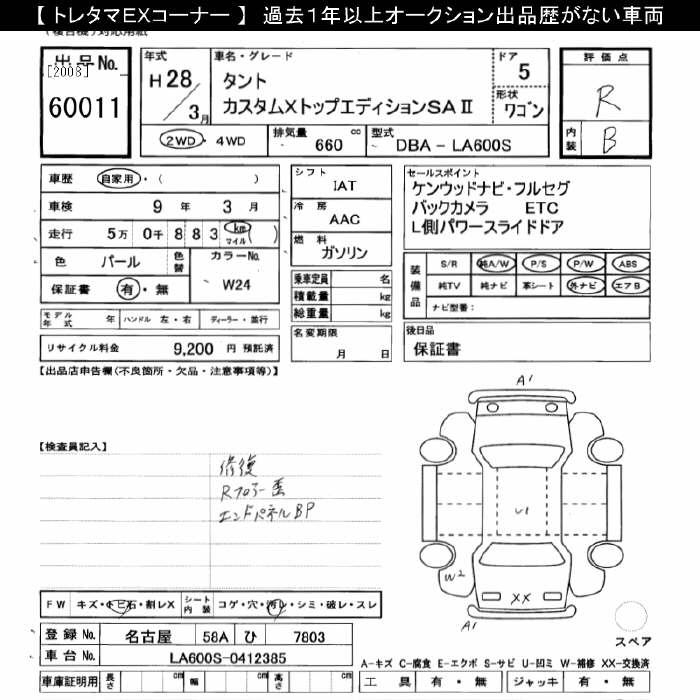 【 トレタマEXコーナー 】 過去１年以上オークション出品歴がない車両
出品No.
[2008]
60011
年式
H 28 / 3 月
車名・グレード
タント
カスタムXトップエディションSAⅡ
ドア
5
形状
ワゴン
評価点
R
内装
B
2WD ・ 4WD
排気量 660 cc
型式 DBA - LA600S
車歴 自家用 ・ ( )
車検 9 年 3 月
走行 5 万 0 千 8 8 3 km マイル
色 パール 色替
カラーNo.
W24
保証書 有 ・ 無
シフト
IAT
冷房
AAC
燃料
ガソリン
乗車定員 名
積載量 kg
総重量 kg
セールスポイント
ケンウッドナビ・フルセグ
バックカメラ ETC
L側パワースライドドア
装備品
S/R 純A/W P/S P/W ABS
純TV 純ナビ 革シート 外ナビ エアB
ナビ型番：
モデル年式 年 ハンドル 左・右 ディーラー・並行
リサイクル料金 9,200 円 預託済
名変期限
月 日
後日品
保証書
【出品店申告欄(不良箇所・欠品・注意事項等)】
【検査員記入】
修復
Rフロアー歪
エンドパネルBP
A1
U1
W2
XX
A1
スペア
FW キズ・トビ石・割レX
シート内装 コゲ・穴・汚レ・シミ・破レ・スレ
登録No. 名古屋 58A ひ 7803
車台No. LA600S-0412385
車庫証明用 長さ cm 幅 cm 高さ cm
A-キズ C-腐食 E-エクボ S-サビ U-凹ミ W-補修 XX-交換済
工具 有 ・ 無 ジャッキ 有 ・ 無